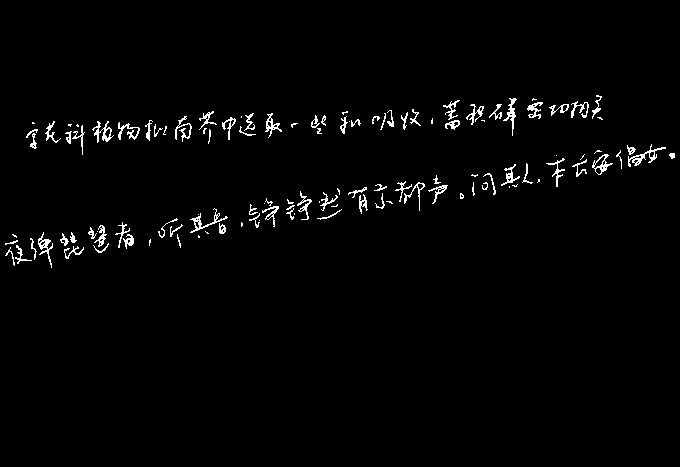 字花科植物拟南芥中选取一些和吸收,蓄积硒密切相关
夜弹琵琶者,听其音,铮铮然有京都声。问其人,本长安倡女。